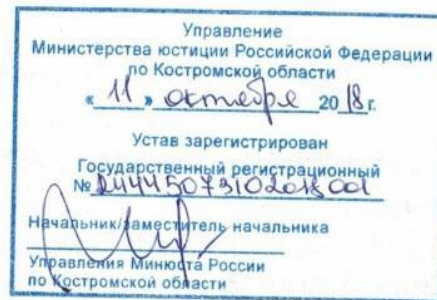 Управление
Министерства юстиции Российской Федерации
по Костромской области
« 11 » октября 2018 г.
Устав зарегистрирован
Государственный регистрационный
№ RU445073102018001
Начальник/заместитель начальника
Управления Минюста России
по Костромской области